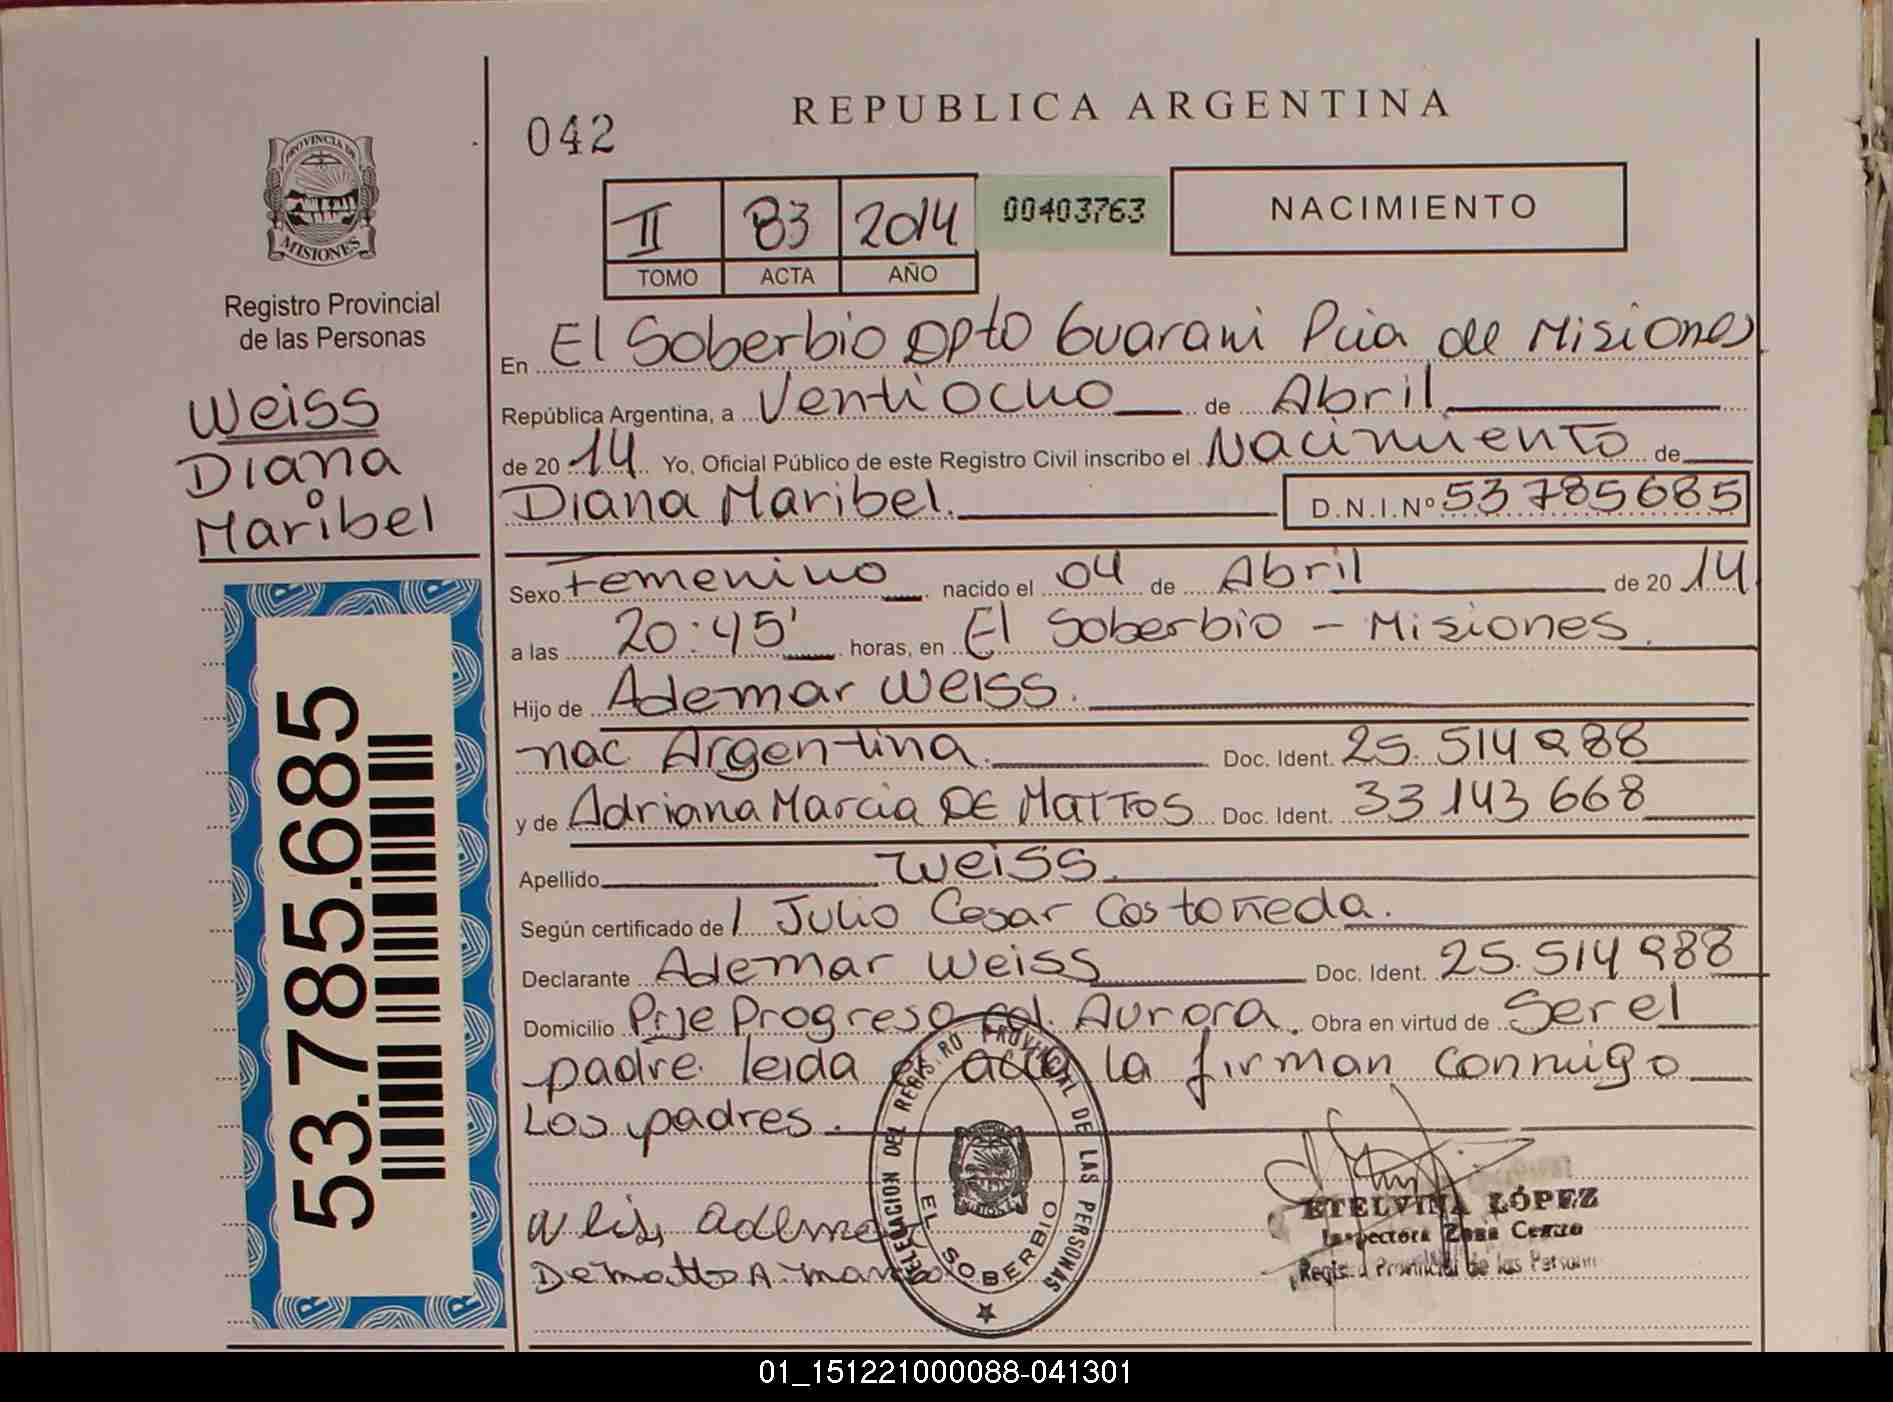 REPUBLICA ARGENTINA
042
PROVINCIA DE
MISIONES
Registro Provincial
de las Personas
Weiss
Diana
Maribel
53.785.685
II 83 2014 00403763 NACIMIENTO
TOMO ACTA AÑO
En El Soberbio Dpto Guarani Pcia de Misiones
República Argentina, a Ventiocho de Abril
de 20 14 Yo, Oficial Público de este Registro Civil inscribo el Nacimiento de
Diana Maribel. D.N.I.Nº 53 785685
Sexo Femenino nacido el 04 de Abril de 20 14
a las 20:45' horas, en El Soberbio - Misiones.
Hijo de Ademar Weiss.
nac Argentina. Doc. Ident. 25.514 988
y de Adriana Marcia DE MATTOS Doc. Ident. 33 143 668
Apellido Weiss.
Según certificado de / Julio Cesar Castañeda.
Declarante Ademar Weiss Doc. Ident. 25.514 988
Domicilio Pje Progreso col. Aurora. Obra en virtud de Ser el
padre. leida el acta la firman conmigo
Los padres.
Weis Ademar
De matto A.
DELEGACION DEL REGISTRO PROVINCIAL DE LAS PERSONAS
EL SOBERBIO
ETELVINA LÓPEZ
Inspectora Zona Centro
Regis. Provincial de las Personas
01_151221000088-041301